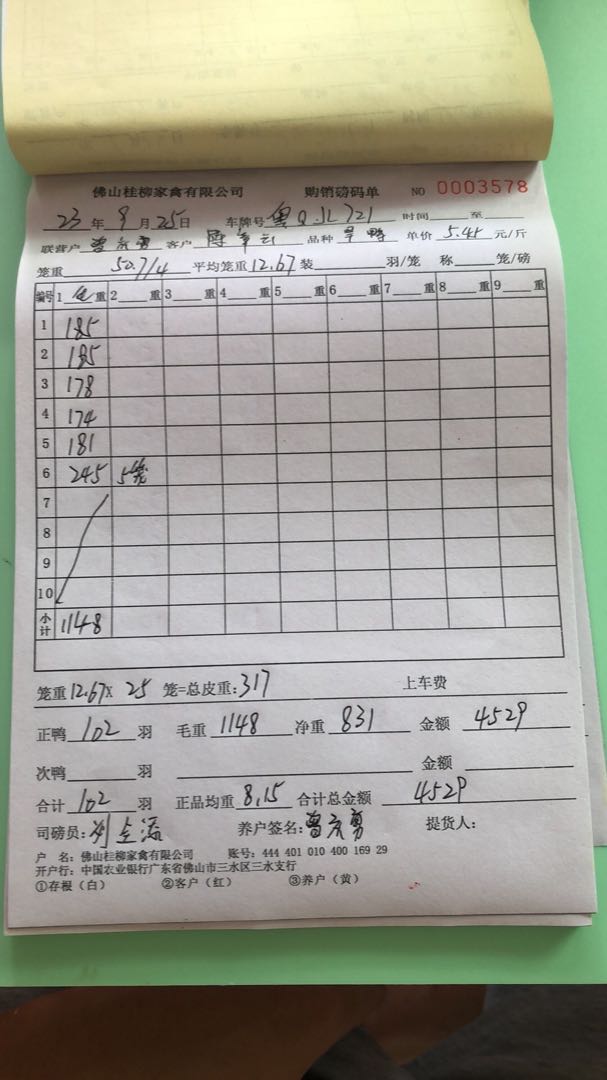 佛山桂柳家禽有限公司 购销磅码单 NO 0003578
23年9月25日 车牌号 粤Q.JL721 时间 至
联营户 曾庆勇 客户 品种 旱鸭 单价 5.45 元/斤
笼重 50.7/4 平均笼重12.67 装 羽/笼 称 笼/磅
编号 1 重 2 重 3 重 4 重 5 重 6 重 7 重 8 重 9 重
1 185
2 185
3 178
4 174
5 181
6 245 5笼
7
8
9
10
小计 1148
笼重12.67X 25 笼=总皮重:317 上车费
正鸭 102 羽 毛重 1148 净重 831 金额 4529
次鸭 羽 金额
合计 102 羽 正品均重 8.15 合计总金额 4529
司磅员: 养户签名: 曾庆勇 提货人:
户 名: 佛山桂柳家禽有限公司 账号: 444 401 010 400 169 29
开户行: 中国农业银行广东省佛山市三水区三水支行
①存根(白) ②客户(红) ③养户(黄)